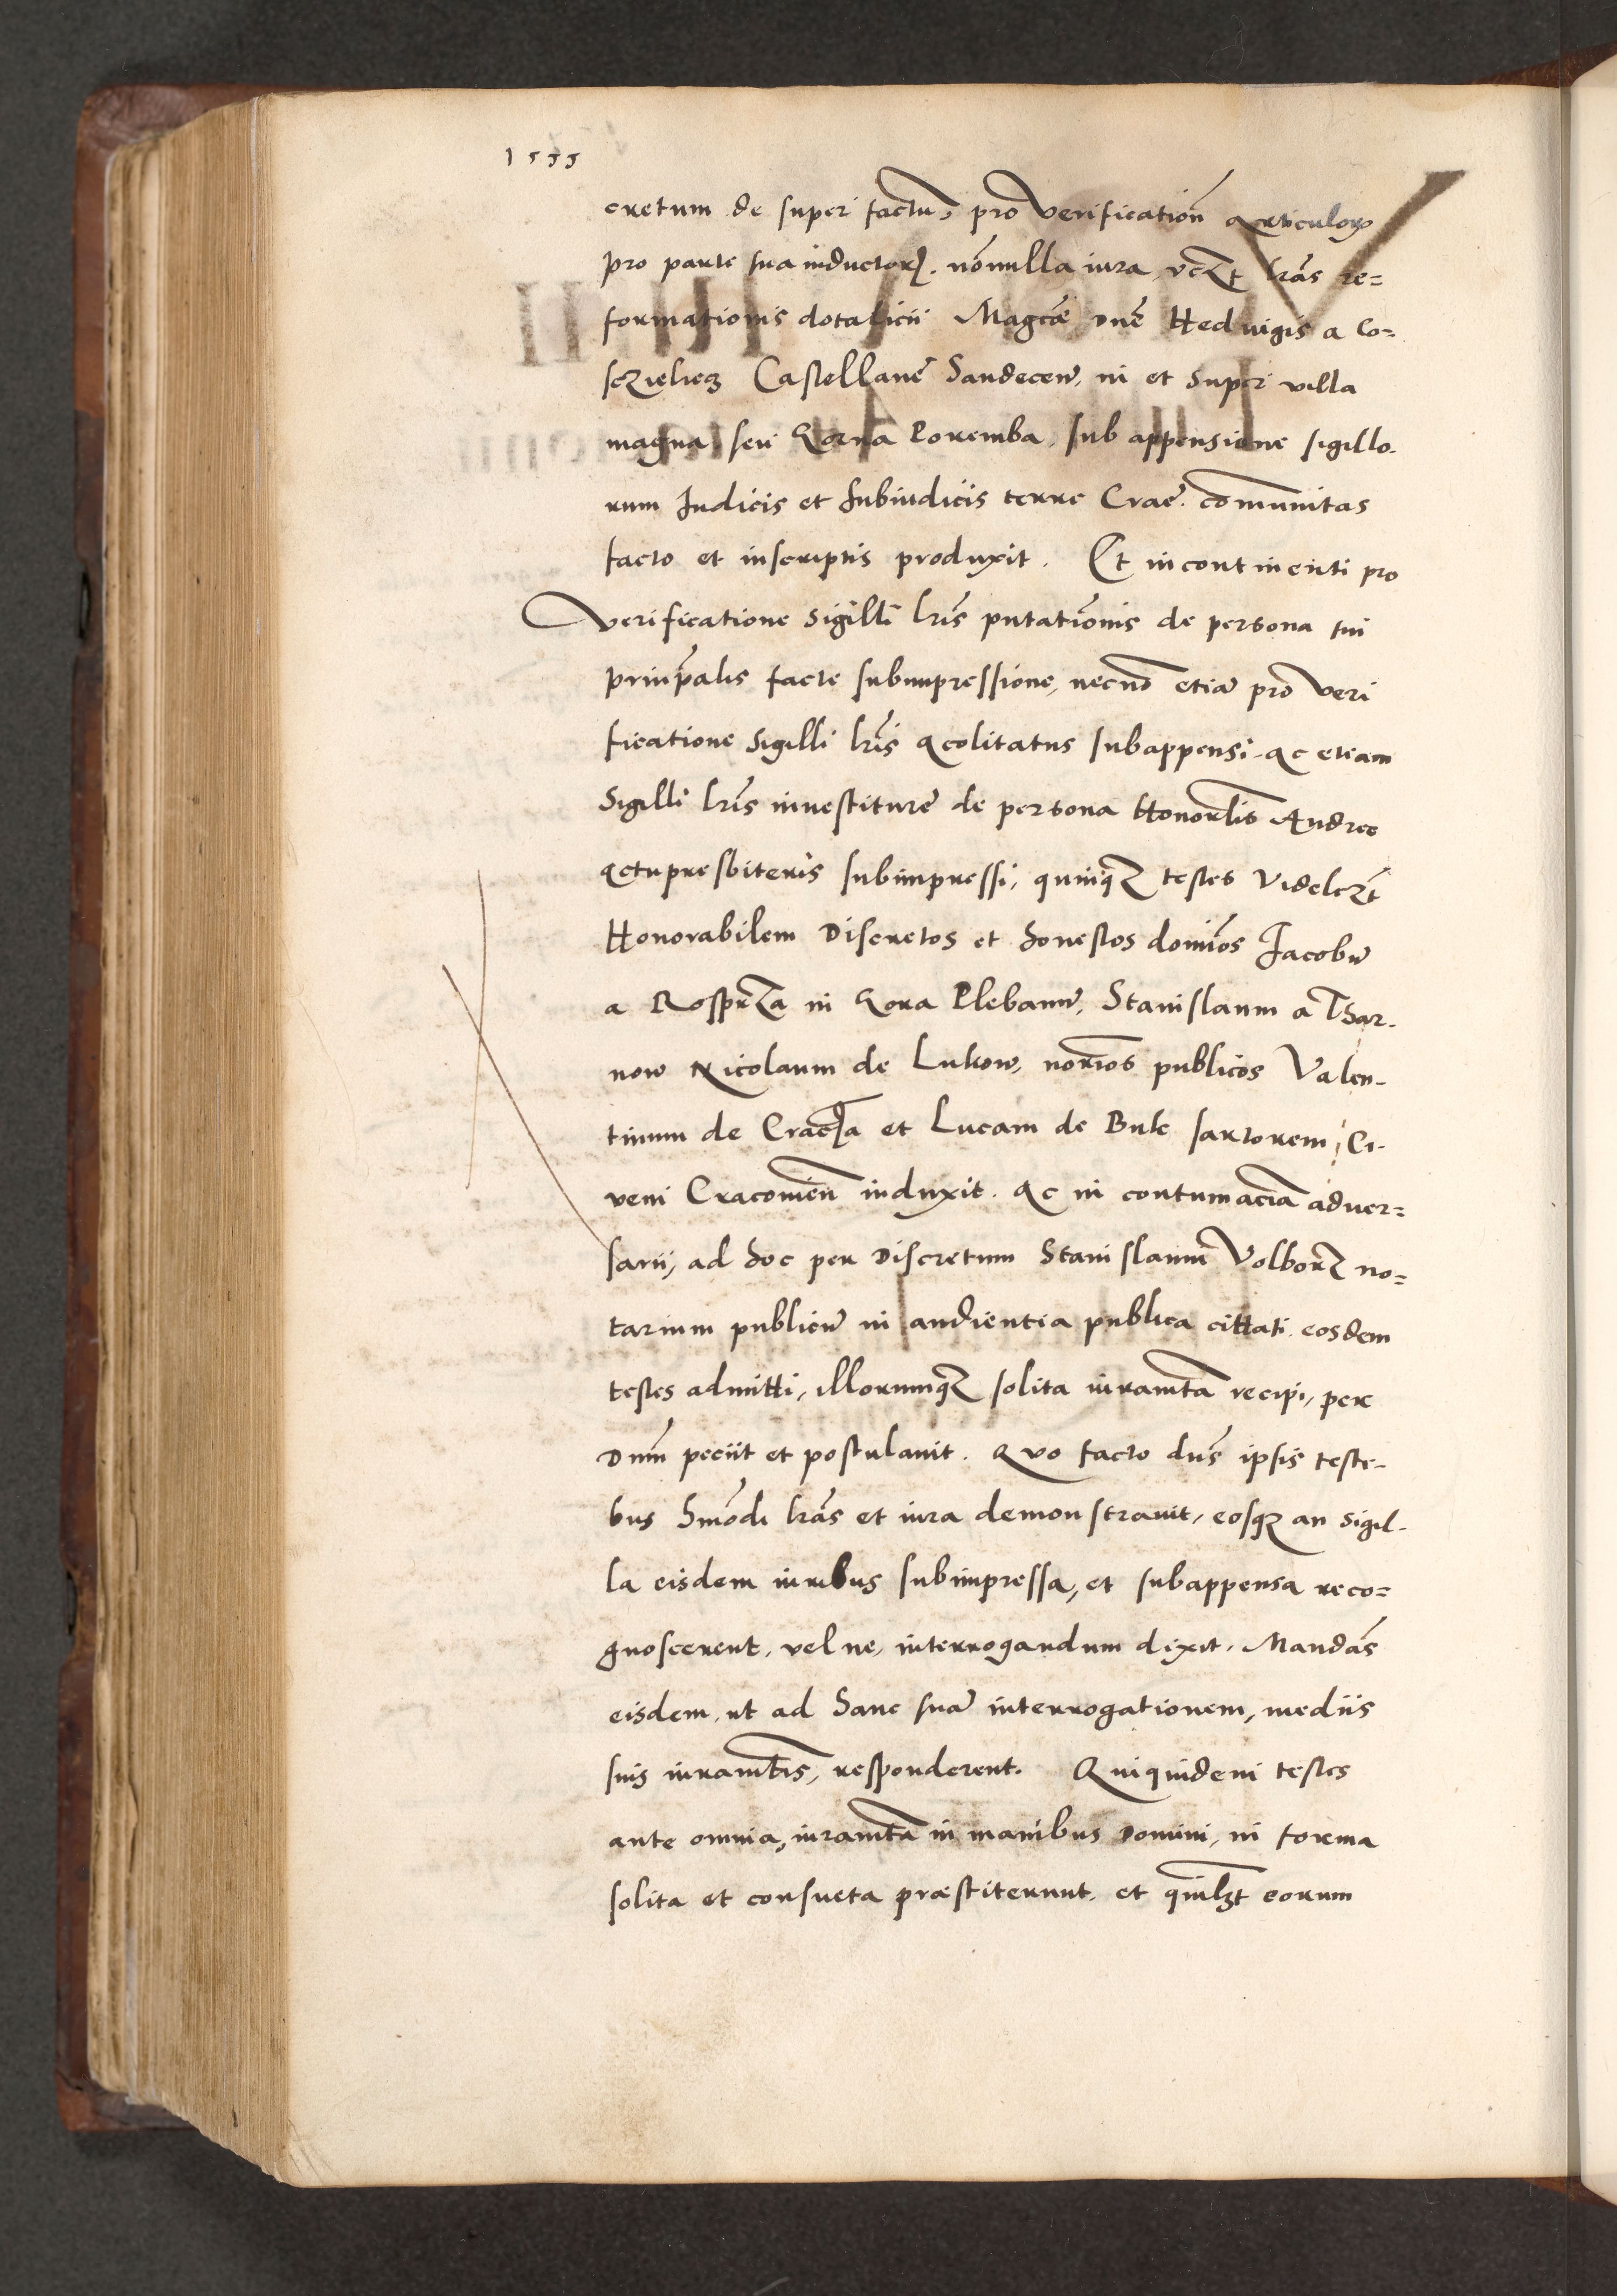 1535
cretum de super factu, pro verification articulorꝫ
pro parte sua inductorꝫ. nonnulla iura, vczt lras re=
formationis dotalicii Magcæ Dne Hedvigis a Co=
sczieliecz Castellane Sandecen, in et super villa
magna seu Gorna Poremba, sub appensione sigillo-
rum Iudicis et Subiudicis terre Crac. communitas
facto et inscriptis produxit. Et incontinenti pro
verificatione Sigilli lris putationis de persona sui
principalis facte subimpressione, necno etia pro veri
ficatione Sigilli lris Acolitatus subappensi. Ac etiam
Sigilli lris investiture de persona Honorlis Andree
Actupresbiteris subimpressi, quinqꝫ testes Videlczt
Honorabilem Discretos et honestos dominos Jacobu
a Rosprza in Gora Plebanu, Stanislaum a Thar-
now Nicolaum de Lukow, norios publicos Valen-
tinum de Cracia et Lucam de Busc sartorem, Ci-
vem Cracovien induxit. Ac in contumacia adver=
sarii, ad hoc per Discretum Stanislaum Volborz no=
tarium publicu in audientia publica cittati, eosdem
testes admitti, illorumqꝫ solita iuramta recipi, per
Dnm peciit et postulavit. Quo facto dns ipsis teste-
bus hmodi lras et iura demonstravit, eosqꝫ an sigil-
la eisdem iuribus subimpressa, et subappensa reco=
gnoscerent, vel ne, interrogandum dixit. Mandas
eisdem, ut ad hanc sua interrogationem, mediis
suis iuramtis, responderent. Quiquidem testes
ante omnia, iuramta in manibus Domini, in forma
solita et consueta præstiterunt. et quilꝫt eorum